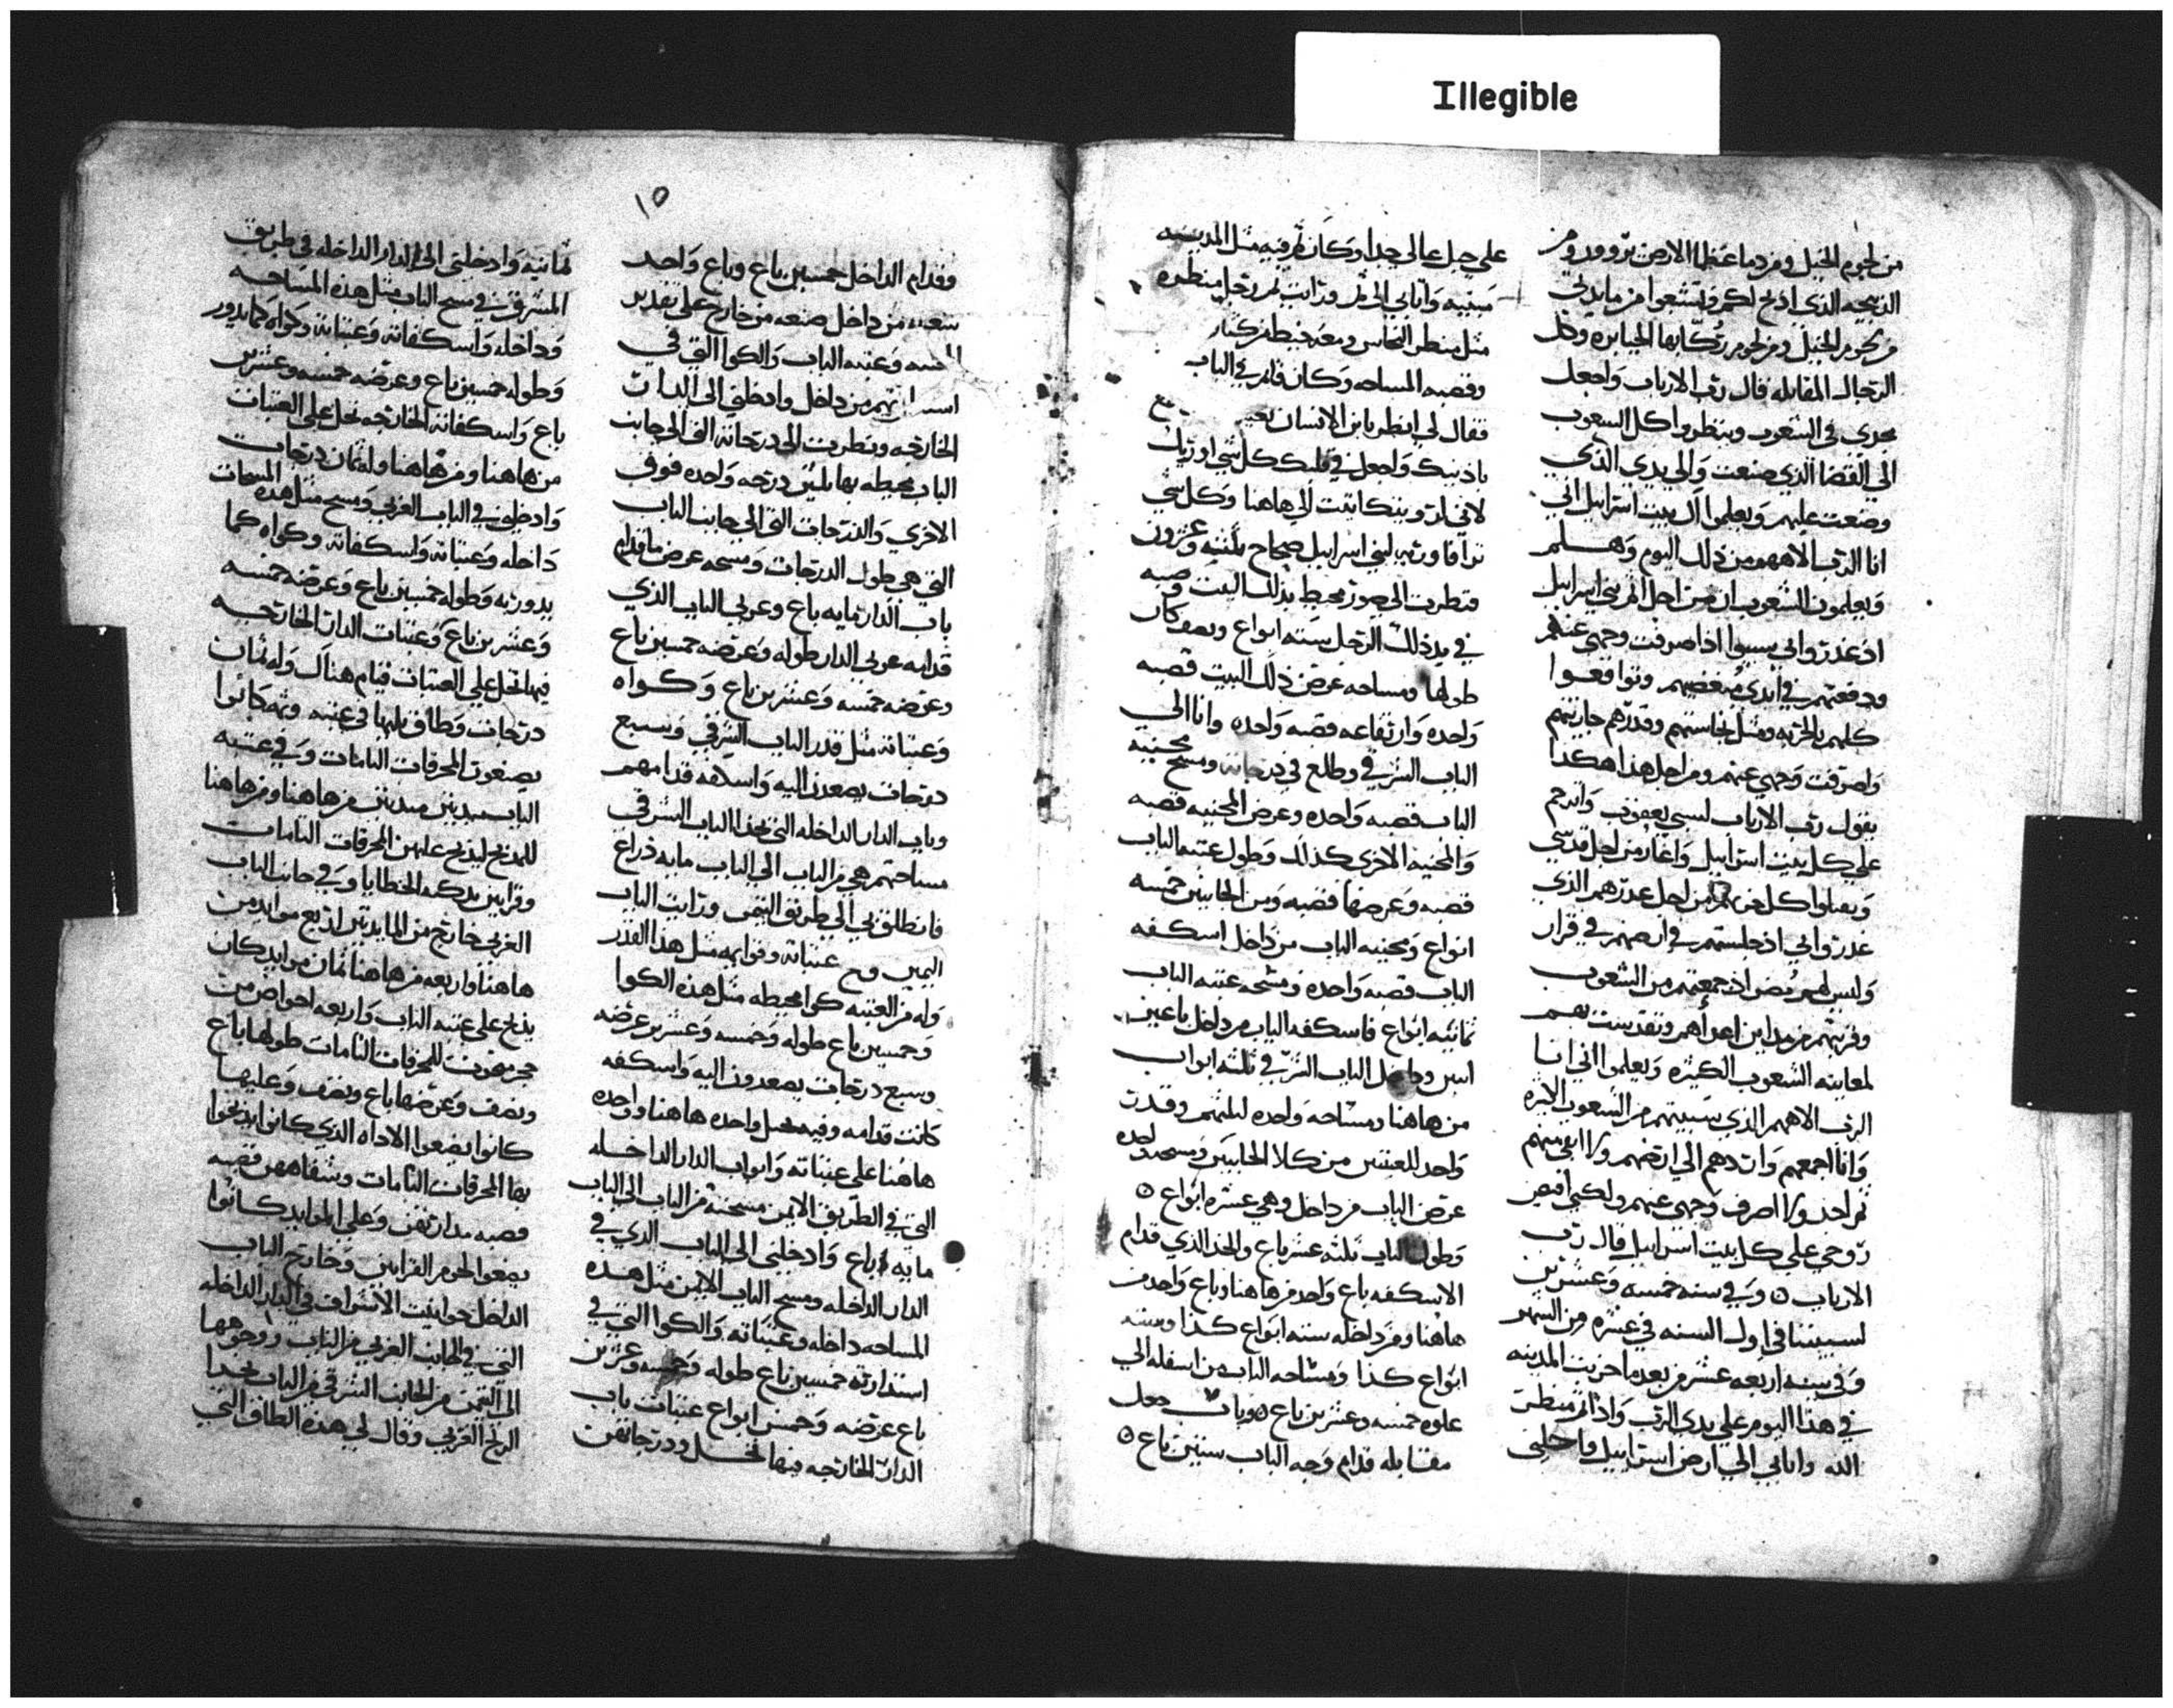 Illegible
من لحوم الخيل ومن دما عظما الارض تروون ومن
الذبيحه الذى اذبح لكم وتشبعوا من مايدتي
من لحوم الخيل ومن لحوم ركابها الجبابره وكل
الرجال المقاتله قال رب الارباب واجعل
مجدى في الشعوب وينظروا كل الشعوب
الى القضا الذي صنعت والى يدي الذي
وضعت عليهم ويعلموا ال بيت اسراييل انى
انا الرب الاههم من ذلك اليوم وهلم
ويعلمون الشعوب ان من اجل اثم بني اسراييل
اذ غدروا بى سبيوا اذا صرفت وجهي عنهم
ودفعتهم في ايدى مبغضيهم وتواقعوا
كلهم بالحربه ومثل نجاستهم وقدرهم جازيتهم
واصرفت وجهي عنهم ومن اجل هذا هكذا
يقول رب الارباب لسبي يعقوب وارحم
علي كل بيت اسراييل واغار من اجل قدسي
غدروا بى اذ جلستهم في ارضهم في قرار
وليس لهم مُضر اذ جمعتهم من الشعوب
وقربتهم من مداين اعدآهم وتقدست بهم
لمعاينه الشعوب الكثيره ويعلموا اني انا
الرب الاههم الذي سبيتهم من الشعوب
وانا اجمعهم واردهم الي ارضهم ولا ابقي منهم
ثم احد ولا اصرف وجهى عنهم ولكني افيض
روحي علي كل بيت اسراييل قال رب
الارباب ٥ وفي سنه خمسه وعشرين
لسبيتنا في اول السنه في عشره من الشهر
وفي سنه اربعه عشر من بعد ما خربت المدينه
في هذا اليوم علي يدى الرب واذا بمنظر
الله واتابي الي ارض اسراييل واحلني
علي جبل عالى جدا وكان ثم فيه مثل المدينه
مبنيه واتابي الى ثم ورايت ثم رجل منظره
مثل منظر النحاس ومعه خيط من كتان
وقصبه المساحه وكان قايم في الباب
فقال لي انظر يا بن الانسان
باذنيك واجعل في قلبك كل شي اوريك
لاني لاروينك اتيت الى هاهنا وكل شي
في يد ذلك الرجل سته ابواع ونصف كان
طولها ومساحه عرض ذلك البيت قصبه
واحده وارتفاعه قصبه واحده واتا الى
الباب الشرقي وطلع في درجاته ومسح مجنبه
الباب قصبه واحده وعرض المجنبه قصبه
والمجنبه الاخرى كذلك وطول عتبه الباب
قصبه وعرضها قصبه ومن الجانبين خمسه
ابواع ومجنبه الباب من داخل اسكفه
الباب قصبه واحده ومسحه عتبه الباب
ثمانيه ابواع فاسكفه الباب من داخل باعين
اثنين وداخل الباب الشرقي ثلثه ابواب
من هاهنا ومساحه واحده لثلثتهم وقدر
واحد للعتبتين من كلا الجانبين
عرض الباب من داخل وهي عشره ابواع ٥
وطول الباب ثلثه عشر باع والحد الذي قدام
الاسكفه باع واحد من هاهنا وباع واحد من
هاهنا ومن داخله سته ابواع كذا وسته
ابواع كذا ومساحه الباب من اسفله الي
علوه خمسه وعشرين باع ٥ وباب جعل
مقابله قدام وجه الباب ستين باع ٥
١٥
وقدام الداخل خمسين باع وباع واحد
من داخل صنعه من خارج على تقدير
وعتبه الباب والكوا التي في
من داخل وادخلني الى الدار
الخارجه ونظرت الى درجاته التى الى جانب
الباب محيطه بها ثلثين درجه واحده فوق
الاخرى والدرجات التي الي جانب الباب
التي هي طول الدرجات ومسحه عرض ما قدام
باب الدار مايه باع وعربى الباب الذي
قدامه عربي الدار طوله وعرضه خمسين باع
وعرضه خمسه وعشرين باع وكواه
وعتباته مثل قدر الباب الشرقي وسبع
درجات يصعدن اليه واسكفه قدامهم
وباب الدار الداخله التي بحذا الباب الشرقي
مساحتهم هي من الباب الي الباب مايه ذراع
فانطلق بي الي طريق التيمن ورايت الباب
التيمن عتباته وقوايمه مثل هذا القدر
وله من العتبه كوا محيطه مثل هذه الكوا
وخمسين باع طوله وخمسه وعشرين عرضه
وسبع درجات يصعدون اليه واسكفه
كانت قدامه وفيه نخل واحده هاهنا وواحده
هاهنا على عتباته وابواب الدار الداخله
التي في الطريق الايمن مسحته من الباب الى الباب
مايه باع وادخلني الى الباب الذي في
الدار الداخله ومسح الباب الايمن مثل هذه
المساحه داخله وعتباته والكوا التي في
استدارته خمسين باع طوله وخمسه وعشرين
باع عرضه وخمس ابواع عتبات باب
الدار الخارجه فيها نخل ودرجاتهن
ثمانيه وادخلني الى الدار الداخله في طريق
المشرق ومسح الباب مثل هذه المساحه
وداخله واسكفاته وعتباته وكواه كما يدور
وطوله خمسين باع وعرضه خمسه وعشرين
باع واسكفاته الخارجه نخل على العتبات
من هاهنا ومن هاهنا وله ثمان درجات
وادخلني في الباب الغربي ومسح مثل هذه المسحات
داخله وعتباته واسكفاته وكواه كما
يدور به وطوله خمسين باع وعرضه خمسه
وعشرين باع وعتبات الدار الخارجه
فيها نخل علي العتبات قيام هناك وله ثمان
درجات وطاق يليها في عتبه وثم كانوا
يصنعون المحرقات التامات وفي عتبه
الباب مديتين من هاهنا ومن هاهنا
للمذبح ليذبح عليهن المحرقات التامات
وقرابين بدل الخطايا وفي جانب الباب
الغربي خارج من المايدتين اربع موايد من
هاهنا واربعه من هاهنا ثمان موايد كان
يذبح على عتبه الباب واربعه احواض من
حجر منحوت للمحرقات التامات طولها باع
ونصف وعرضها باع ونصف وعليها
كانوا يضعوا الاداه الذي كانوا يذبحوا
بها المحرقات التامات وشفاههن قصبه
قصبه مدارتهن وعلى الموايد كانوا
يضعوا لحوم القرابين وخارج الباب
الداخل حوانيت الاشراف في الدار الداخله
التي في الجانب الغربي من الباب ووجوهها
الى التيمن من الجانب الشرقي من الباب بحذا
الريح الغربي وقال لي هذه الطاق التي